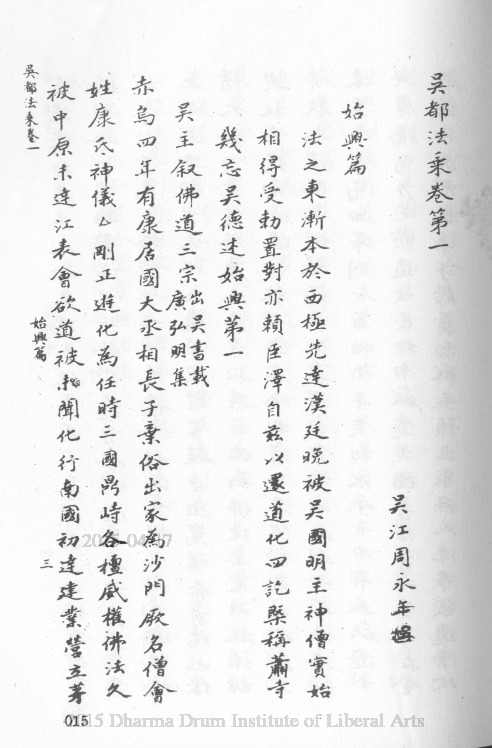 吳都法乘卷第一
吳江周永年撰
始興篇
法之東漸本於西極先達漢廷晚被吳國明主神僧實始
相得受勅置對亦賴臣澤自茲以還道化四訖槩稱蕭寺
幾忘吳德述始興第一
吳王叙佛道三宗 出吳書載廣弘明集
赤烏四年有康居國大丞相長子棄俗出家為沙門厥名僧會
姓康氏神儀剛正遊化為任時三國鼎峙各擅威權佛法久
被中原未達江表會欲道被未聞化行南國初達建業營立茅
吳都法乘卷一
始興篇
三
015
2015 Dharma Drum Institute of Liberal Arts